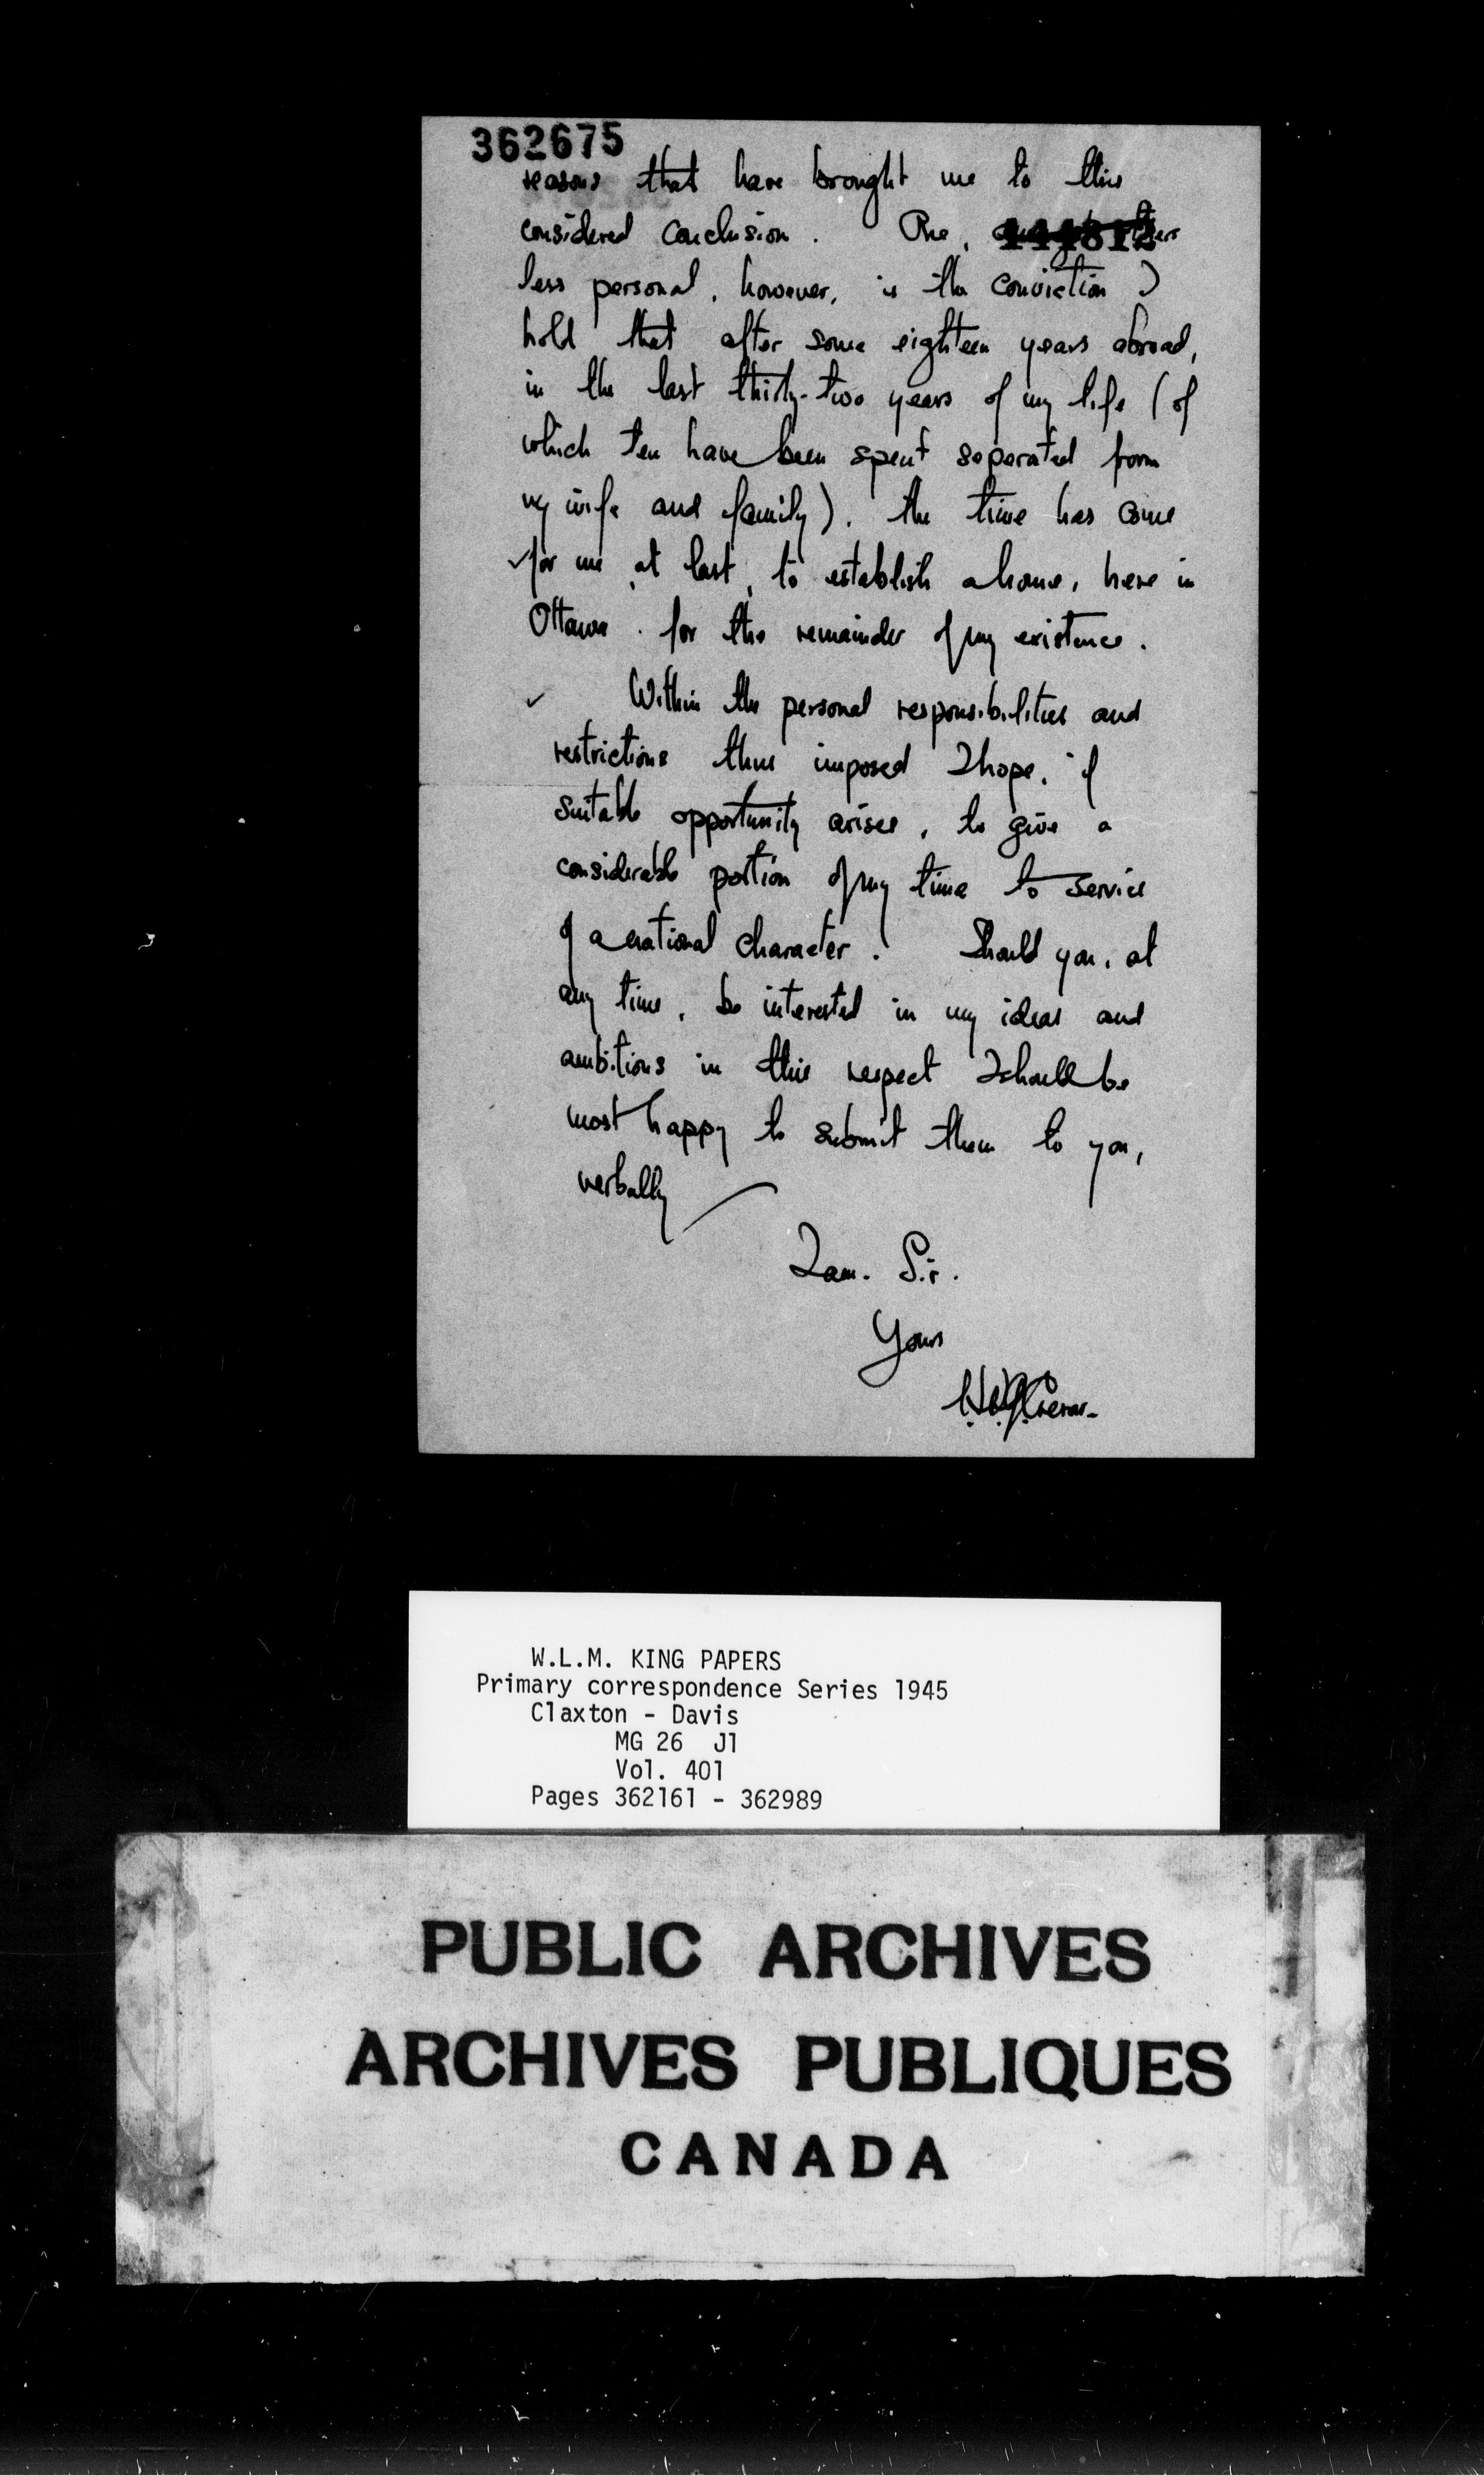 362675
reasons that have brought me to this
considered conclusion. One,
less personal, however, is the conviction I
hold that after some eighteen years abroad,
in the last thirty-two years of my life (of
which ten have been spent seperated from
my wife and family). the time has come
for me, at last, to establish a home, here in
Ottawa. for the remainder of my existence.
Within the personal responsibilities and
restrictions thus imposed I hope, if
suitable opportunity arises, to give a
considerable portion of my time to service
of a national character. Should you, at
any time, be interested in my ideas and
ambitions in this respect I should be
most happy to submit them to you,
verbally
I am. Sir.
Yours
H.D.G. Crerar.
W.L.M. KING PAPERS
Primary correspondence Series 1945
Claxton - Davis
MG 26 J1
Vol. 401
Pages 362161 - 362989
PUBLIC ARCHIVES
ARCHIVES PUBLIQUES
CANADA